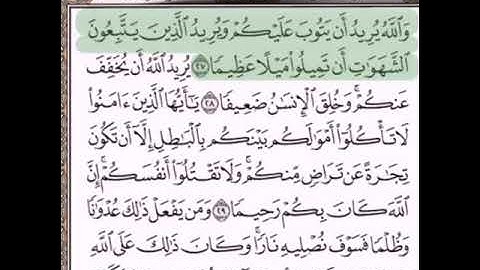 وَاللَّهُ يُرِيدُ أَن يَتُوبَ عَلَيْكُمْ وَيُرِيدُ الَّذِينَ يَتَّبِعُونَ
الشَّهَوَاتِ أَن تَمِيلُوا مَيْلًا عَظِيمًا ٢٧ يُرِيدُ اللَّهُ أَن يُخَفِّفَ
عَنكُمْ ۚ وَخُلِقَ الْإِنسَانُ ضَعِيفًا ٢٨ يَا أَيُّهَا الَّذِينَ ءَامَنُوا
لَا تَأْكُلُوا أَمْوَالَكُم بَيْنَكُم بِالْبَاطِلِ إِلَّا أَن تَكُونَ
تِجَارَةً عَن تَرَاضٍ مِّنكُمْ ۚ وَلَا تَقْتُلُوا أَنفُسَكُمْ ۚ إِنَّ
اللَّهَ كَانَ بِكُمْ رَحِيمًا ٢٩ وَمَن يَفْعَلْ ذَٰلِكَ عُدْوَانًا
وَظُلْمًا فَسَوْفَ نُصْلِيهِ نَارًا ۚ وَكَانَ ذَٰلِكَ عَلَى اللَّهِ